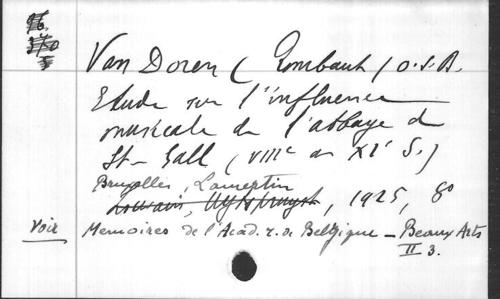 96.
370
Van Doren (Rombaut) O.S.B.
Etude sur l'influence
musicale de l'abbaye de
St-Gall (VIIIe au XIe S.)
Bruxelles, Lamertin
Louvain, Uystpruyst, 1925, 8o
Voir Memoires de l'Acad. r. de Belgique - Beaux Arts
II 3.